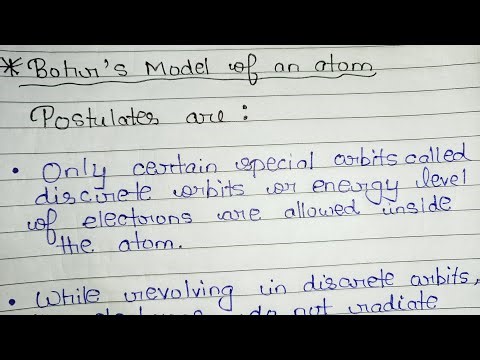 * Bohr's Model of an atom
Postulates are :
• Only certain special orbits called
discrete orbits or energy level
of electrons are allowed inside
the atom.
• While revolving in discrete orbits,
do not radiate